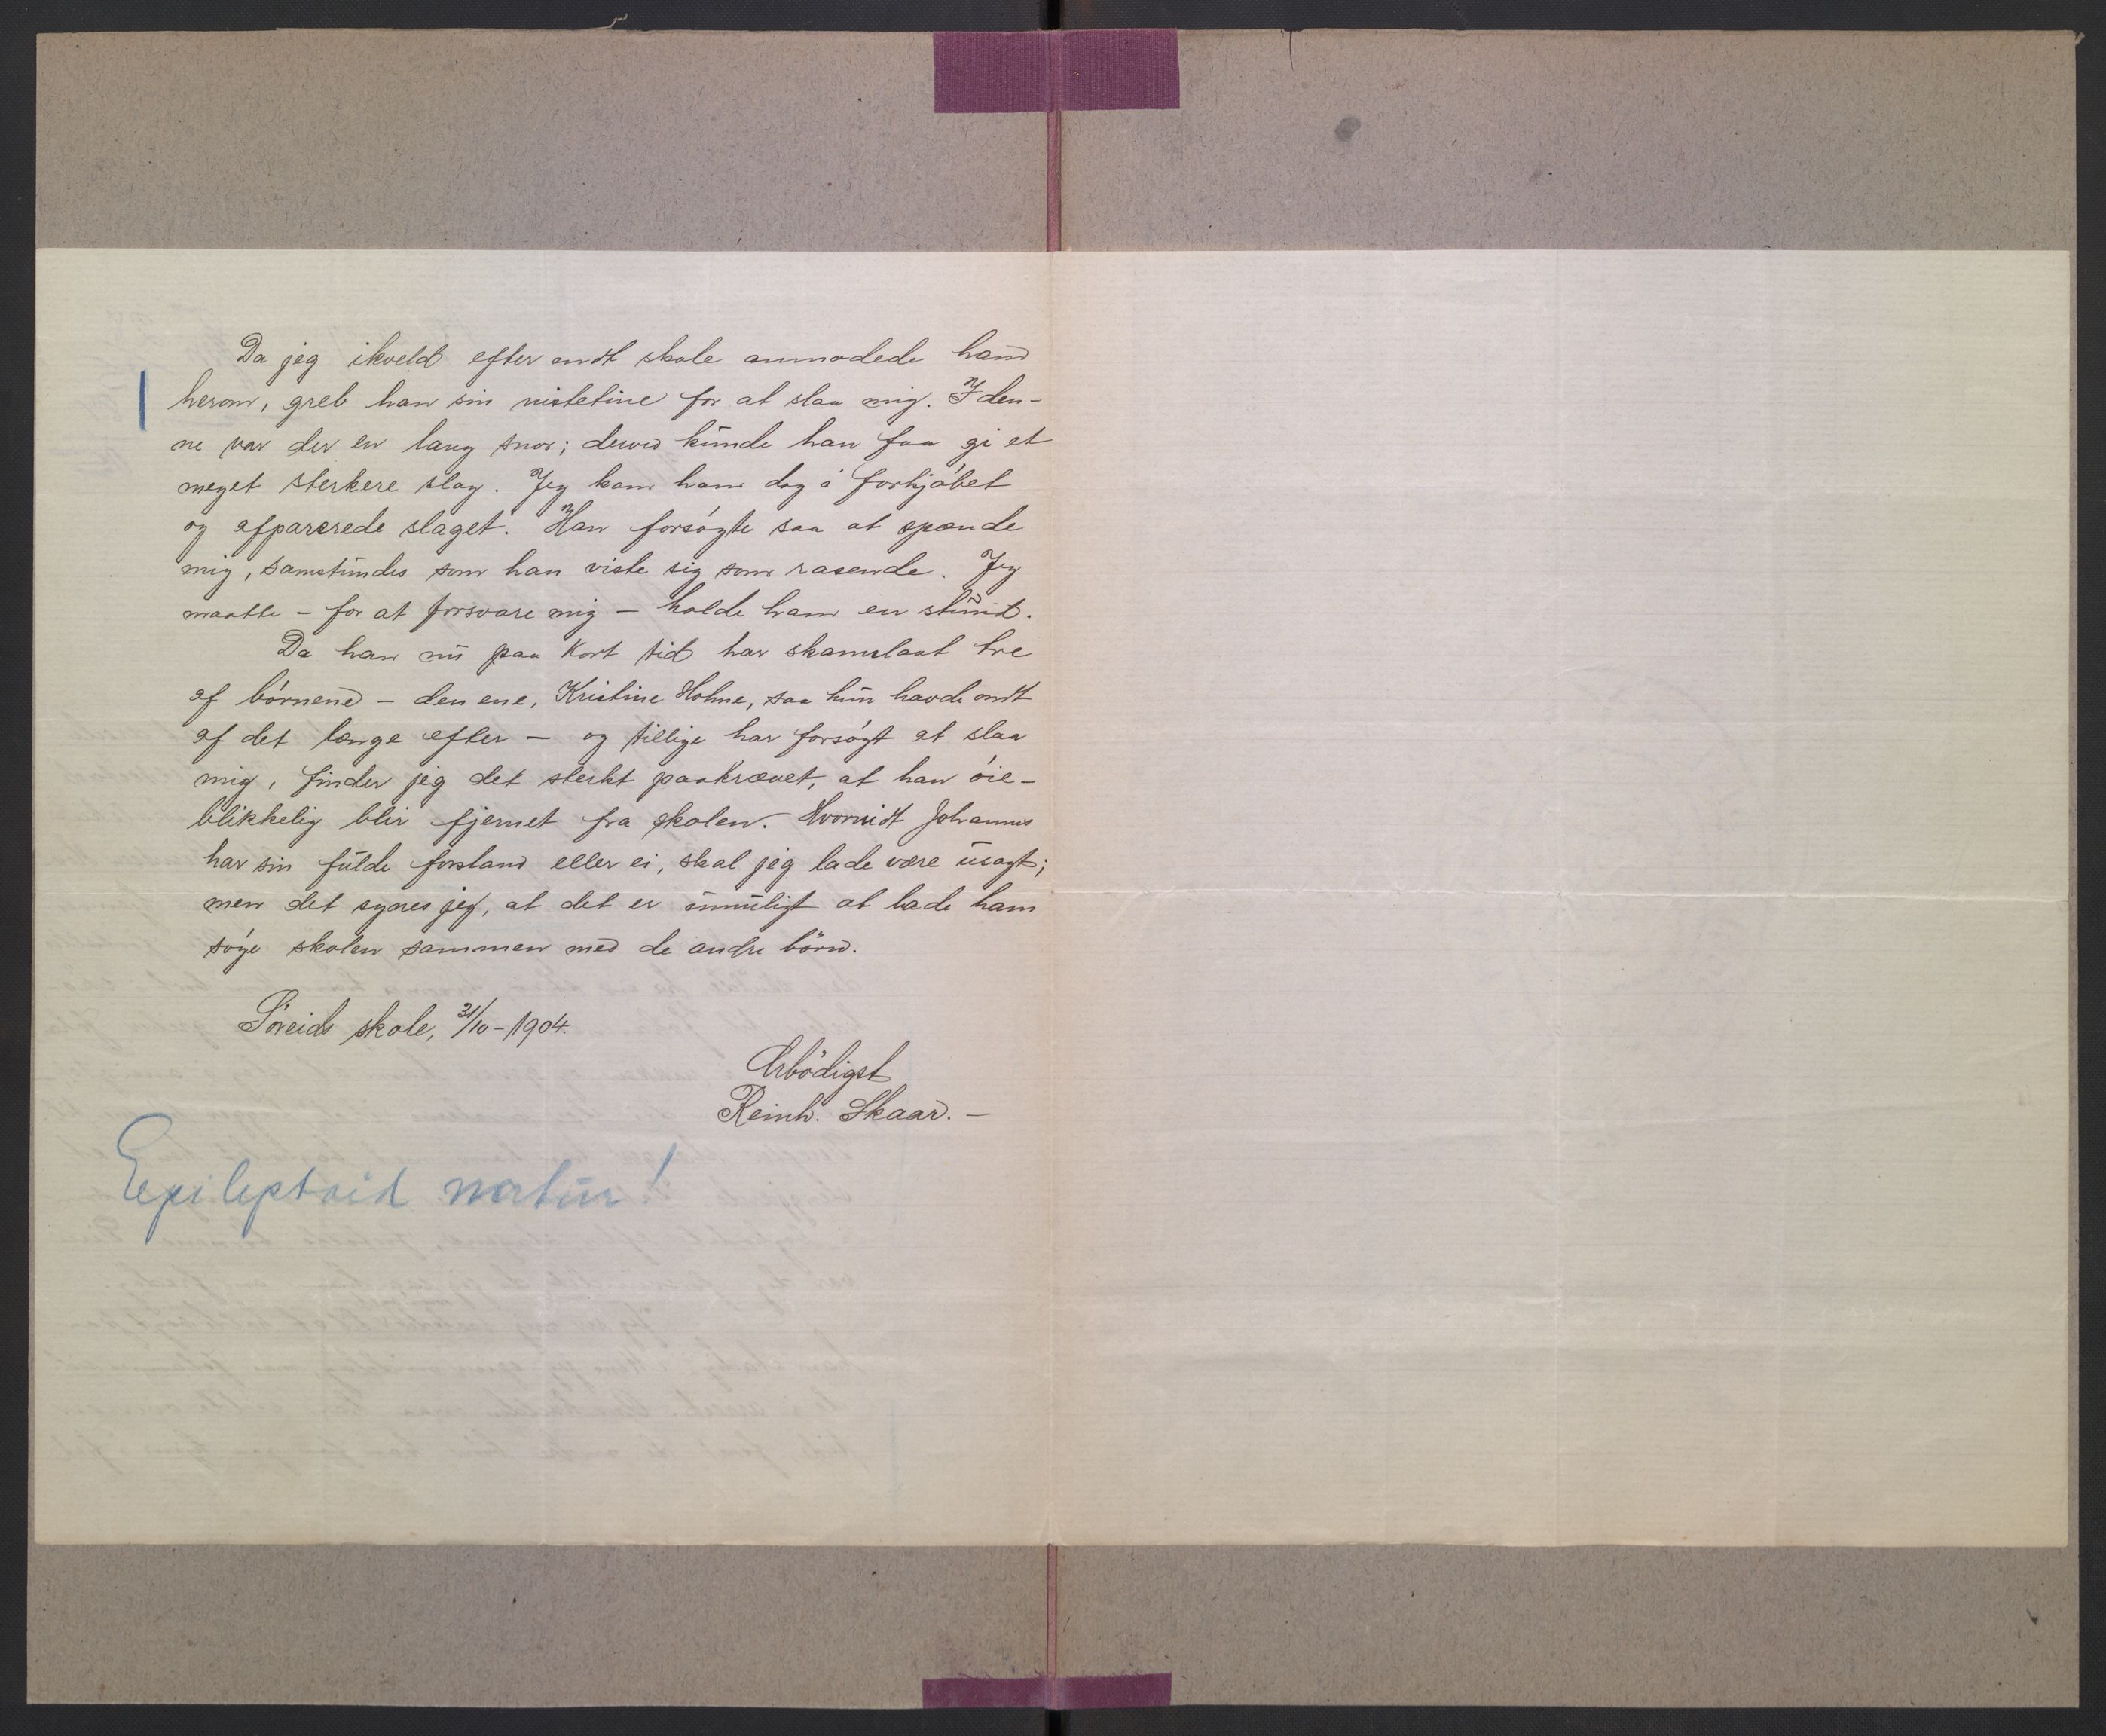 Da jeg ikveld efter endt skole anmodede ham
herom, greb han sin nistetine for at slaa mig. I den-
ne var der en lang snor; derved kunde han faa gi et
meget sterkere slag. Jeg kom ham dog i forkjøbet
og afparerede slaget. Han forsøgte saa at spænde
mig, samstundes som han viste sig som rasende. Jeg
maatte – for at forsvare mig – holde ham en stund.
Da han nu paa kort tid har skamslaat tre
af børnene – den ene, Kristine Holme, saa hun havde ondt
af det længe efter – og tillige har forsøgt at slaa
mig, finder jeg det sterkt paakrævet, at han øie-
blikkelig blir fjernet fra skolen. Hvorvidt Johannes
har sin fulde forstand eller ei, skal jeg lade være usagt;
men det synes jeg, at det er umuligt at lade ham
søge skolen sammen med de andre børn.
Søreide skole, 31/10-1904.
Ærbødigst
Reinh. Skaar. –
Epileptoid natur!